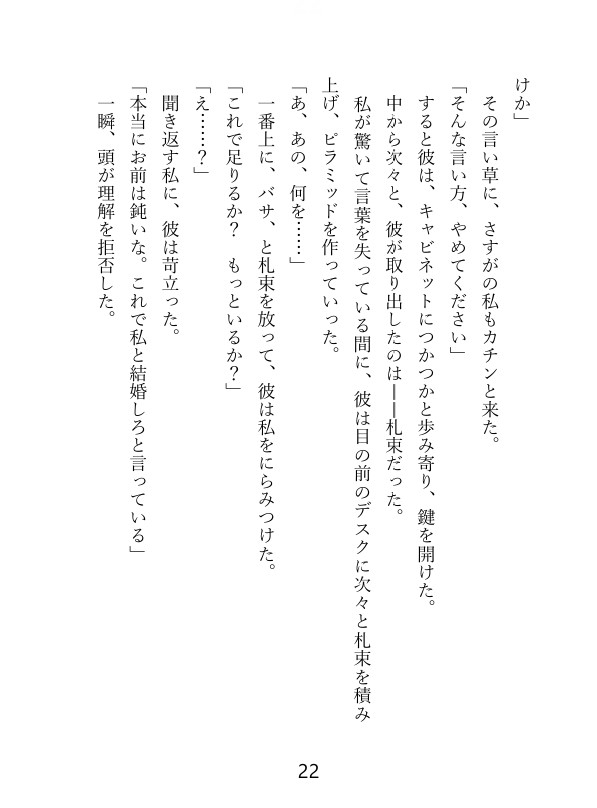 けか」
　その言い草に、さすがの私もカチンと来た。
「そんな言い方、やめてください」
　すると彼は、キャビネットにつかつかと歩み寄り、鍵を開けた。
　中から次々と、彼が取り出したのは――札束だった。
　私が驚いて言葉を失っている間に、彼は目の前のデスクに次々と札束を積み
上げ、ピラミッドを作っていった。
「あ、あの、何を……」
　一番上に、バサ、と札束を放って、彼は私をにらみつけた。
「これで足りるか？　もっといるか？」
「え……？」
　聞き返す私に、彼は苛立った。
「本当にお前は鈍いな。これで私と結婚しろと言っている」
　一瞬、頭が理解を拒否した。
22